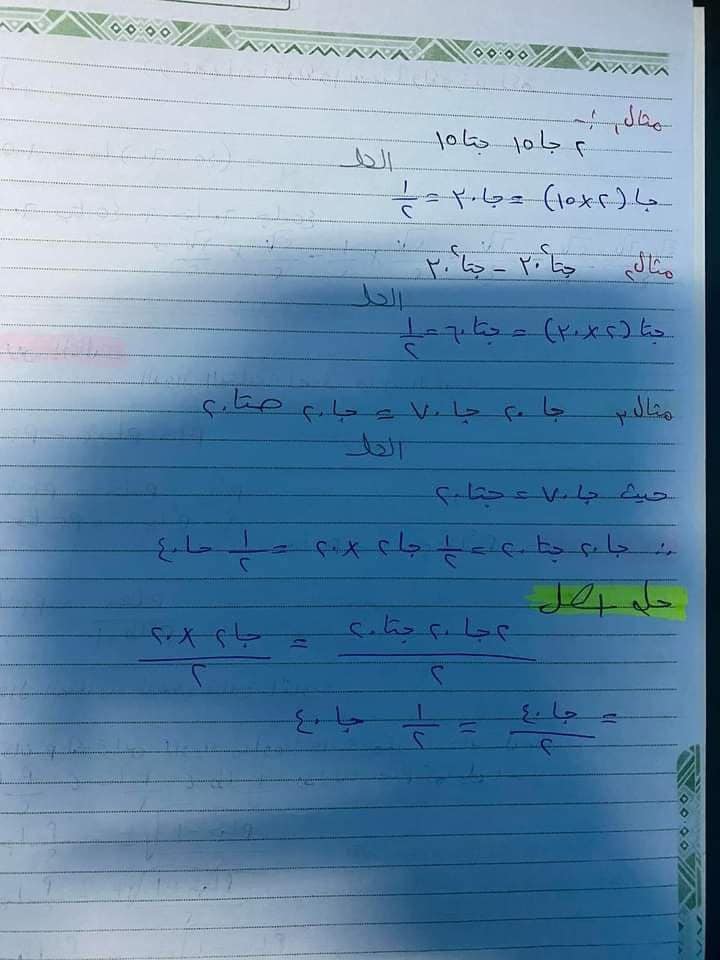 مثال ١ :-
٢ جا ١٥ جتا ١٥
الحل
جا (٢×١٥) = جا ٣٠ = ١/٢
مثال ٢ جتا²٣٠ - جتا²٣٠
الحل
جتا (٢×٣٠) = جتا ٦٠ = ١/٢
مثال ٣ جا ٢٠ جا ٧٠ = جا ٢٠ جتا ٢٠
الحل
حيث جا ٧٠ = جتا ٢٠
∴ جا ٢٠ جتا ٢٠ = ١/٢ جا ٢ × ٢٠ = ١/٢ جا ٤٠
٢ جا ٢٠ جتا ٢٠ / ٢ = جا ٢ × ٢٠ / ٢
= جا ٤٠ / ٢ = ١/٢ جا ٤٠